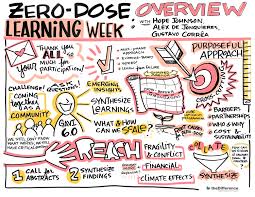 ZERO-DOSE
LEARNING WEEK
OVERVIEW
WITH HOPE JOHNSON
ALEX DE JONQUIERES,
GUSTAVO CORRÊA
THANK YOU
ALL
SO VERY MUCH FOR
PARTICIPATION!
PURPOSEFUL
APPROACH
CHALLENGE!
QUESTIONS!
COMING
TOGETHER
AS A
COMMUNITY
GAVI
6.0
EMERGING
INSIGHTS
SYNTHESIZE
LEARNING
WHAT AND
HOW CAN WE
SCALE?
BARRIERS
PARTNERSHIPS
WHO & WHY
COST &
SUSTAINABILITY
REACH
1 CALL FOR
ABSTRACTS
2 SYNTHESIZE
FINDINGS
FRAGILITY
& CONFLICT
FINANCIAL
CLIMATE EFFECTS
SYNTHESIZE
theDifference